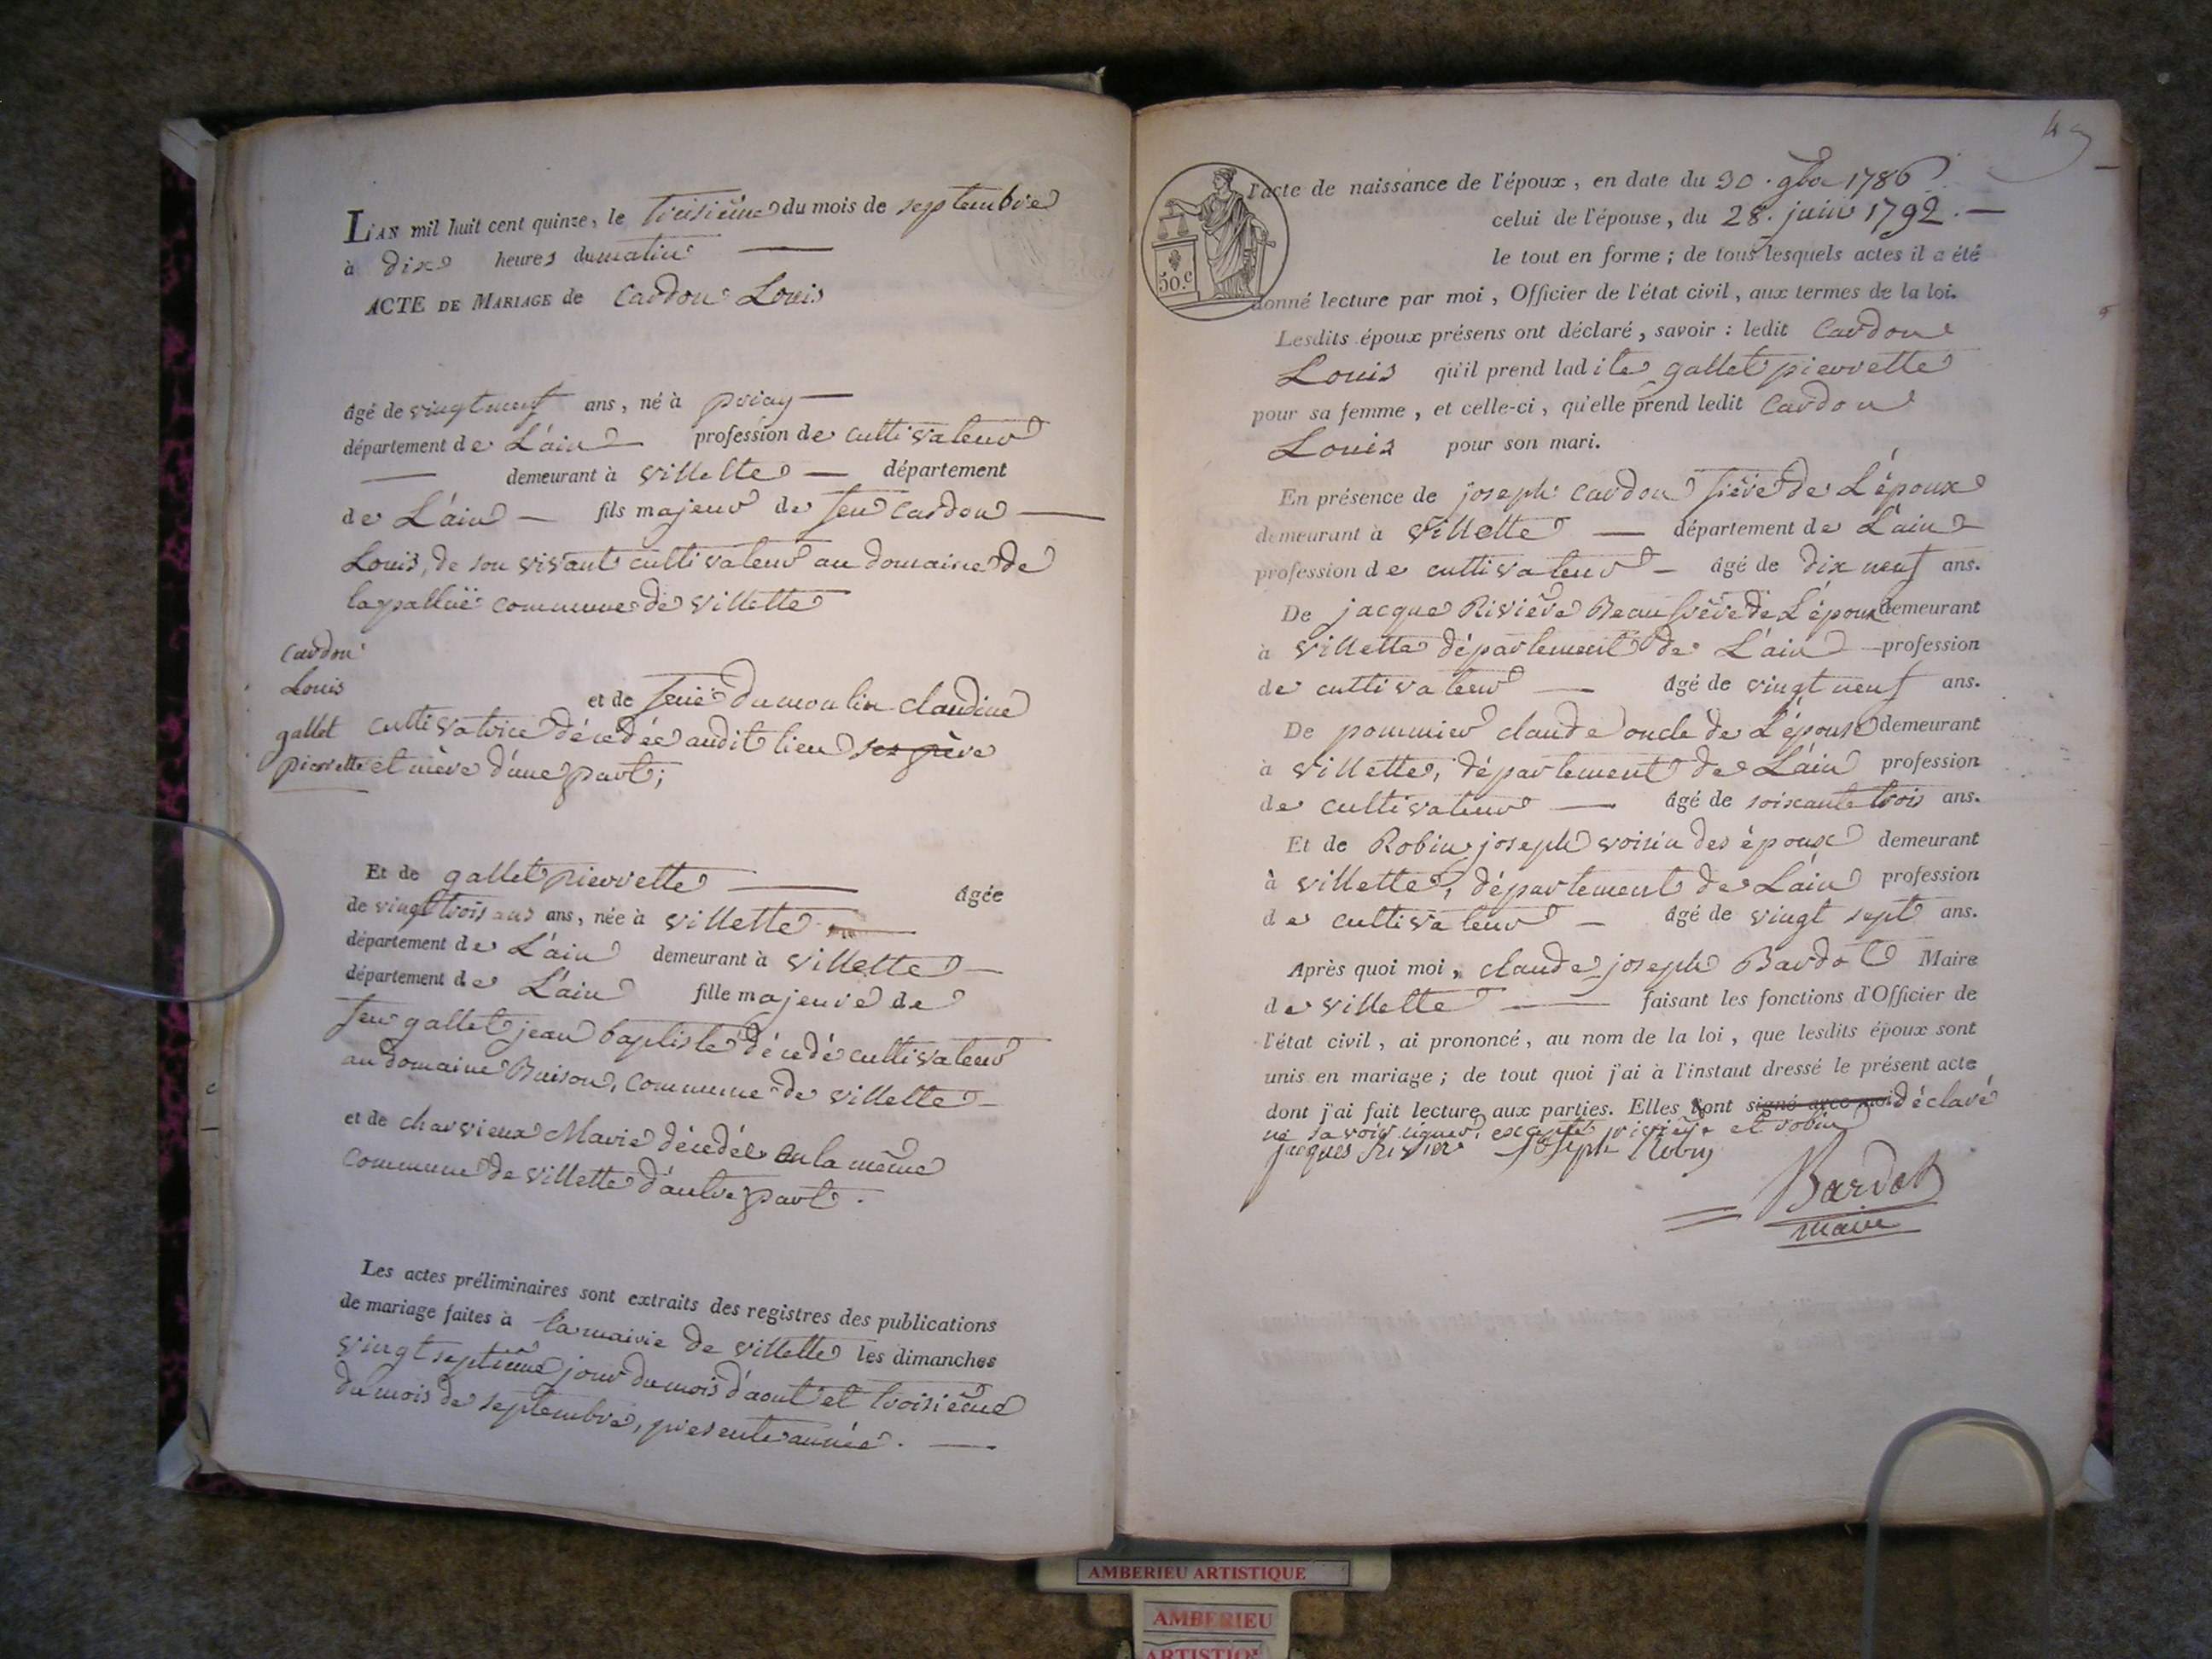 L'AN mil huit cent quinze, le troisième du mois de septembre
à dix heures du matin
ACTE DE MARIAGE de Cardon Louis
âgé de vingt neuf ans, né à priay
département de L'ain profession de cultivateur
demeurant à villette département
de L'ain fils majeur de feu Cardon
Louis, de son vivant cultivateur au domaine de
lapalluë commune de villette
Cardon
Louis
gallet
pierrette
et de feuë Dumoulin claudine
cultivatrice décédée audit lieu ses père
et mère d'une part;
Et de gallet pierrette âgée
de vingt trois ans ans, née à villette
département de L'ain demeurant à villette
département de L'ain fille majeure de
feu gallet jean baptiste décédé cultivateur
au domaine Buison, commune de villette
et de charvieux Marie décédée en la même
commune de villette d'autre part.
Les actes préliminaires sont extraits des registres des publications
de mariage faites à la mairie de villette les dimanches
vingt septième jour du mois d'aout et troisième
du mois de septembre, presente année.
l'acte de naissance de l'époux, en date du 30. 9bre 1786
celui de l'épouse, du 28. juin 1792.
le tout en forme; de tous lesquels actes il a été
50.c
donné lecture par moi, Officier de l'état civil, aux termes de la loi.
Lesdits époux présens ont déclaré, savoir: ledit Cardon
Louis qu'il prend ladite gallet pierrette
pour sa femme, et celle-ci, qu'elle prend ledit Cardon
Louis pour son mari.
En présence de joseph Cardon frère de L'époux
demeurant à villette département de L'ain
profession de cultivateur âgé de dix neuf ans.
De jacque Rivière Beaufrère de L'époux demeurant
à villette département de L'ain profession
de cultivateur âgé de vingt neuf ans.
De pommier claude oncle de L'épouse demeurant
à villette, département de L'ain profession
de cultivateur âgé de soixante trois ans.
Et de Robin joseph voisin des époux demeurant
à villette, département de L'ain profession
de cultivateur âgé de vingt sept ans.
Après quoi moi, claude joseph Bardot Maire
de villette faisant les fonctions d'Officier de
l'état civil, ai prononcé, au nom de la loi, que lesdits époux sont
unis en mariage; de tout quoi j'ai à l'instaut dressé le présent acte
dont j'ai fait lecture aux parties. Elles ont signé avec moi déclaré
ne savoir signer, excepté rivière et robin
jacques rivier joseph Robin
Bardot
maire
AMBERIEU ARTISTIQUE
AMBERIEU